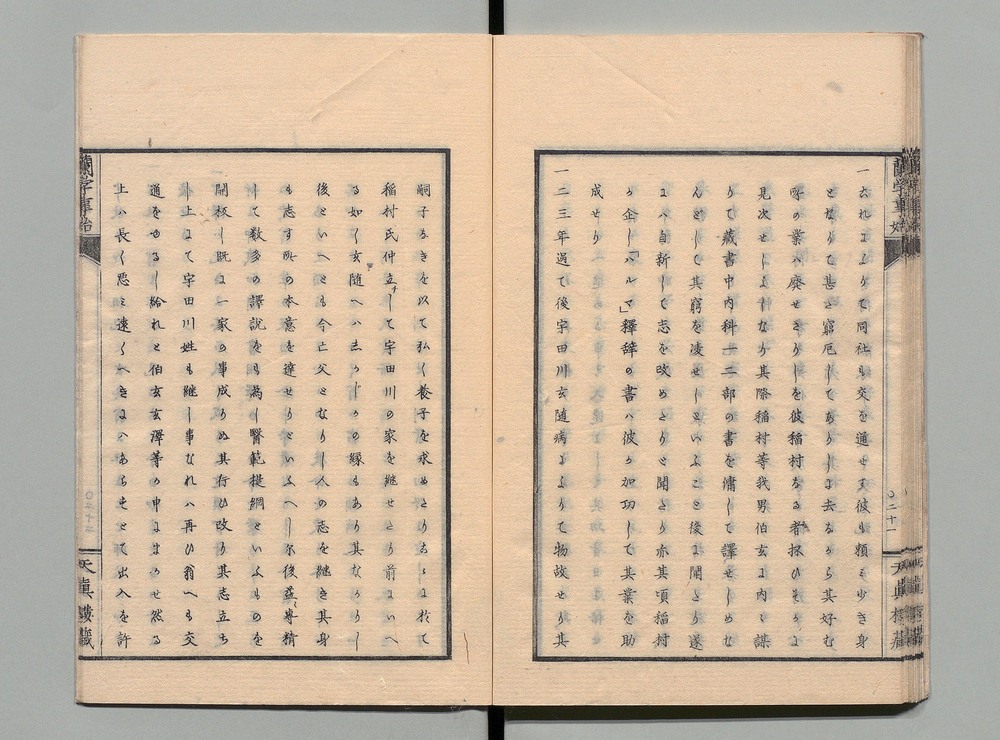 一去れよりて同社も交を通せす彼も頼ミ少き身
となりて甚た窮厄してありしに去るから其好む
所の業ハ廃せさりしを彼稲村なる者探ひ
見次せしよしなり其際稲村等我男伯玄に内々謀
りて蔵書中内科一二部の書を傭して譯せしめな
んとして其窮を凌せしといふこと後に聞たり遂
にハ自新して志を改めたりと聞たり亦其頃稲村
か企し「ハルマ」釋辞の書ハ彼か加功して其業を助
成せり
一二三年過て後宇田川玄随病によりて物故せり其
嗣子なきを以て私く養子を求めたりしに於て
稲村氏仲立して宇田川の家を継せたり前にいへ
る如く玄随へハしかしかの縁もあり其なかりし
後といへとも今亡父となりし人の志を継き其身
も志す所の本意を達せりといふへし尓後益〻専精
して数多の譯説をも為し醫範提綱といふものを
開板し既に一家の事成りぬ其行ひ改り其志立ち
し上にて宇田川姓も継し事なれハ再ひ翁へも交
通をゆるし給れと伯玄玄澤等の申にまかせ然る
上ハ長く悪ミ遠くへきにへあらすとて出入を許
蘭学事始
〇二十一
天真楼蔵
蘭学事始
〇二十二
天真楼蔵